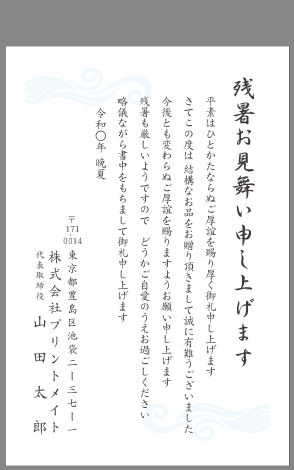 残暑お見舞い申し上げます
平素はひとかたならぬご厚誼を賜り厚く御礼申し上げます
さてこの度は 結構なお品をお贈り頂きまして誠に有難うございました
今後とも変わらぬご厚誼を賜りますようお願い申し上げます
残暑も厳しいようですので　どうかご自愛のうえお過ごしください
略儀ながら書中をもちまして御礼申し上げます
令和〇年 晩夏
〒171-0014
東京都豊島区池袋二ー三七ー一
株式会社プリントメイト
代表取締役　山田太郎